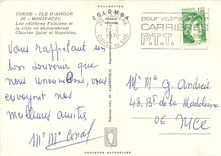 CORSE - ILE D'AMOUR
30 - BONIFACIO
Les célèbres Falaises et
la ville où séjournèrent
Charles Quint et Napoléon.
COLOMBA
pour votre
CARRIÈRE
P.T.T.
Vous rappelant un
bon souvenir que
nous vous
envoyant nos
meilleures amitiés
Mr Mme
Mr Mme G. Andreü
48, Bd de la Madeleine
06 NICE